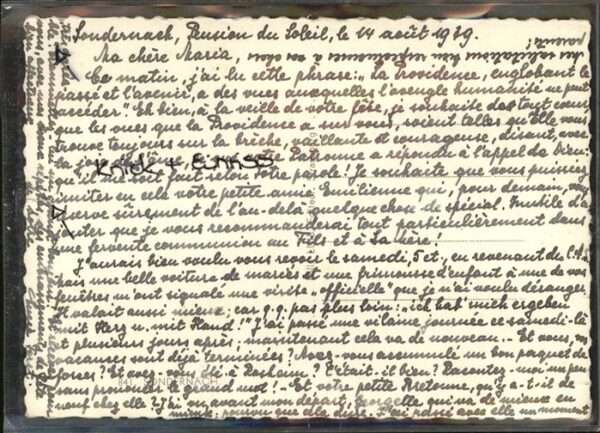 Sondernach, Pension du Soleil, le 14 août 1939.
Ma chère Maria,
Ce matin, j'ai lu cette phrase: „La Providence, englobant le
passé et l'avenir, a des vues auxquelles l'aveugle humanité ne peut
accéder." Eh bien, à la veille de votre fête, je souhaite de tout cœur
que les vues que la Providence a sur vous, soient telles qu'elle vous
trouve toujours sur la brèche, vaillante et courageuse, disant, avec
la joie votre Patronne a répondu à l'appel de Dieu:
Knick + Einriss
qu'il me soit fait selon votre parole! Je souhaite que vous puissiez
imiter en cela votre petite amie Emilienne qui, pour demain, vous
réserve sûrement de l'au-delà quelque chose de spécial. Inutile d'a-
jouter que je vous recommanderai tout particulièrement dans
une fervente communion au Fils et à Sa Mère!
J'aurais bien voulu vous revoir le samedi, 5 ct, en revenant du
mais une belle voiture de mariés et une frimousse d'enfant à une de vos
fenêtres m'ont signalé une visite „officielle" que je n'ai voulu déranger.
Il valait aussi mieux; car q.q. pas plus loin: „ich hab' mich ergeben
mit Herz u. mit Hand!" J'ai passé une vilaine journée ce samedi-là
et plusieurs jours après; maintenant cela va de nouveau.- Et vous, vos
vacances sont déjà terminées? Avez-vous accumulé un bon paquet de
forces? Et avez-vous été à Rosheim? C'était-il bien? Racontez-moi un peu
841 SONDERNACH
sans prononcer le grand mot!- Et votre petite Bretonne, qu'y a-t-il de
neuf chez elle? J'ai vu, avant mon départ, Georgette qui va de mieux en
mieux; pourvu que cela dure. J'ai passé avec elle un moment